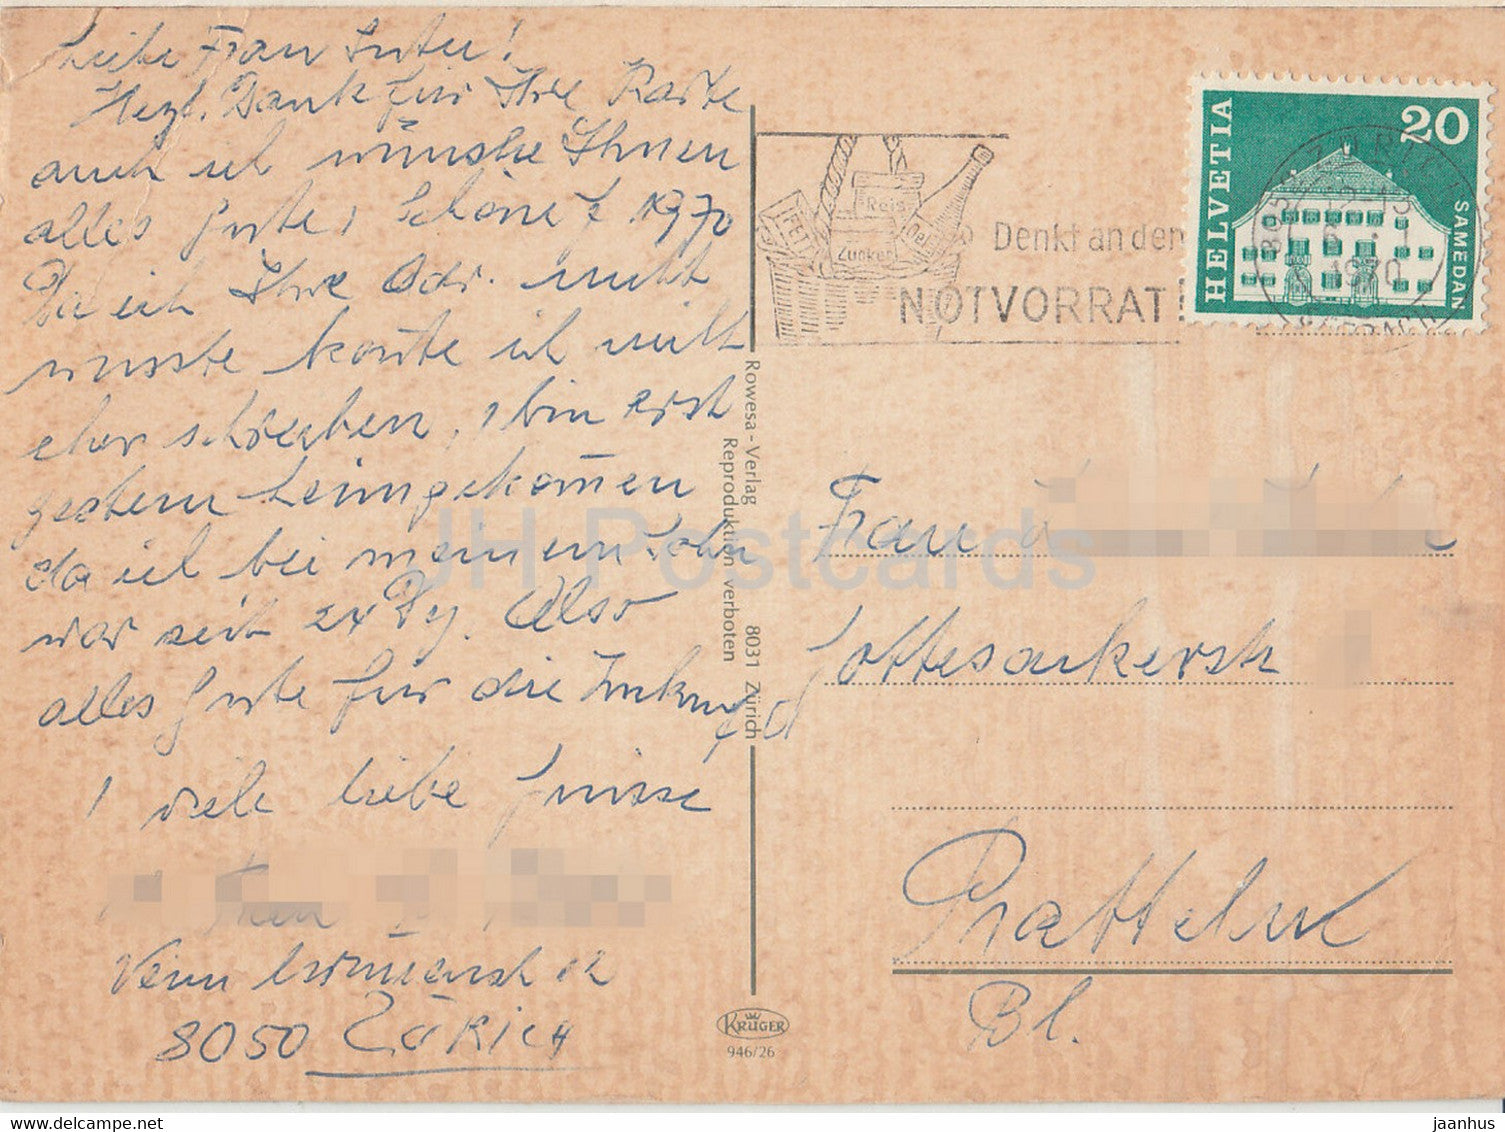 Liebe Frau Suter!
Herzl. Dank für Ihre Karte
auch ich wünsche Ihnen
alles Gute, Schöne f 1970
Da ich Ihre Adr. nicht
wusste konte ich nicht
eher schreiben, bin erst
gestern heimgekomen
da ich bei meinem Sohn
war seit 24 Dez. Also
alles Gute für die Zukunft
viele liebe Grüsse
8050 ZÜRICH
Rowesa - Verlag 8031 Zürich
Reproduktion verboten
KRÜGER
946/26
FETT
Reis
Zucker
Oel
Denkt an den
NOTVORRAT!
HELVETIA
20
SAMEDAN
1970
Frau
Gottesackerstr
Pratteln
Bl.
JH Postcards
www.delcampe.net
jaanhus